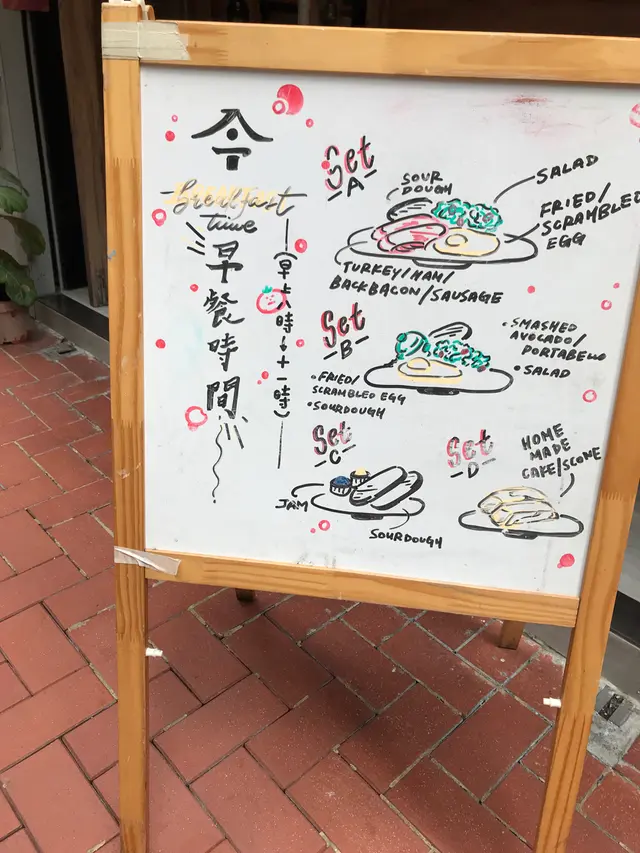 Breakfast
time
早餐時間
(早上八時至十一時)
Set
A
SOUR
DOUGH
SALAD
FRIED/
SCRAMBLED
EGG
TURKEY/HAM/
BACKBACON/SAUSAGE
Set
B
• FRIED/
SCRAMBLED EGG
• SOURDOUGH
• SMASHED
AVOCADO/
PORTABELLO
• SALAD
Set
C
JAM
SOURDOUGH
Set
D
HOME
MADE
CAKE/SCONE